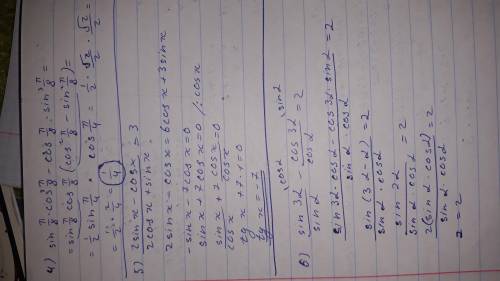 4) sin π/8 · cos³ π/8 - cos π/8 · sin³ π/8 =
= sin π/8 cos π/8 (cos² π/8 - sin² π/8) =
= 1/2 sin π/4 · cos π/4 = 1/2 · √2/2 · √2/2 =
= 1/2 · 2/4 = 1/4
5) (2sinx - cosx)/(2cosx + sinx) = 3
2sinx - cosx = 6cosx + 3sinx
-sinx - 7cosx = 0
sinx + 7cosx = 0 /: cosx
sinx/cosx + 7cosx/cosx = 0
tg x + 7 · 1 = 0
tg x = -7
6) sin3α/sinα - cos3α/cosα = 2
cosα sinα
(sin3α · cosα - cos3α · sinα)/(sinα · cosα) = 2
sin(3α - α)/(sinα · cosα) = 2
sin2α/(sinα · cosα) = 2
2(sinα · cosα)/(sinα · cosα) = 2
2 = 2